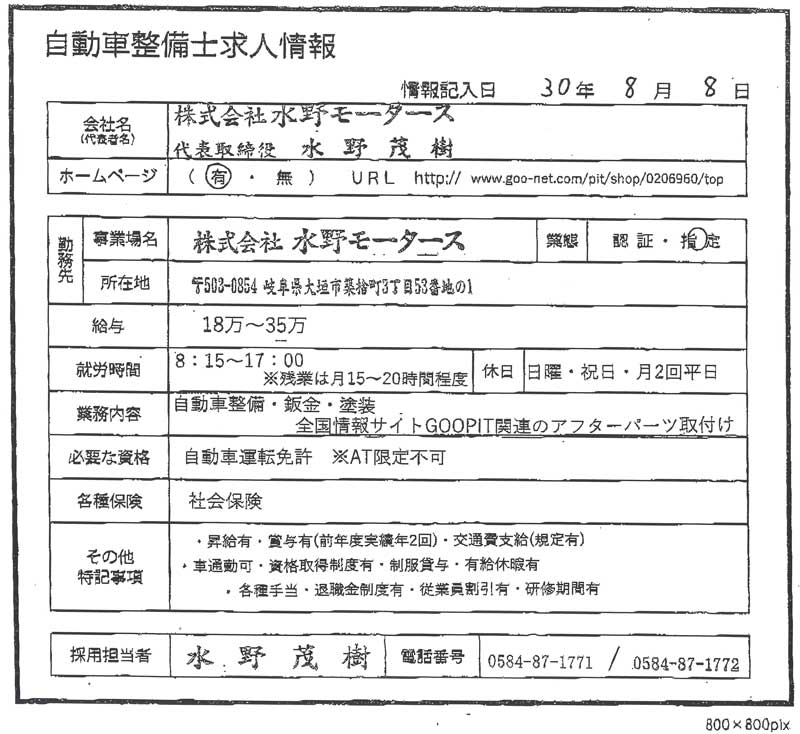 自動車整備士求人情報
情報記入日 30年 8月 8日
会社名
(代表者名)
株式会社水野モータース
代表取締役 水野茂樹
ホームページ
(有・無) URL http:// www.goo-net.com/pit/shop/0206960/top
勤務先
事業場名
株式会社 水野モータース
業態
認証・指定
所在地
〒503-0854 岐阜県大垣市築捨町3丁目53番地の1
給与
18万〜35万
就労時間
8:15〜17:00
※残業は月15〜20時間程度
休日
日曜・祝日・月2回平日
業務内容
自動車整備・鈑金・塗装
全国情報サイトGOOPIT関連のアフターパーツ取付け
必要な資格
自動車運転免許 ※AT限定不可
各種保険
社会保険
その他
特記事項
・昇給有・賞与有(前年度実績年2回)・交通費支給(規定有)
・車通勤可・資格取得制度有・制服貸与・有給休暇有
・各種手当・退職金制度有・従業員割引有・研修期間有
採用担当者
水野茂樹
電話番号
0584-87-1771 / 0584-87-1772
800×800pix